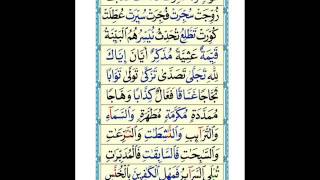 زُوِّجَتْ سُجِّرَتْ فُجِّرَتْ سُيِّرَتْ عُطِّلَتْ
كُوِّرَتْ تَطَّلِعُ تُحَدِّثُ نُيَسِّرُ هُمُ الْبَيِّنَةُ
قَيِّمَةُ عَشِيَّةً مُذَكِّرٌ اَيَّانَ اِيَّاكَ
لِلّٰهِ تَجَلّٰى تَصَدّٰى تَزَكّٰى تَوَلّٰى تَوَّابًا
ثَجَّاجًا غَسَّاقًا فَعَّالٌ كِذَّابًا وَهَّاجًا
مُمَدَّدَةٍ مُكَرَّمَةٍ مُطَهَّرَةٍ وَالسَّمَآءِ
وَالتَّرَآئِبِ وَالنّٰشِطٰتِ وَالنّٰزِعٰتِ
وَالسّٰبِحٰتِ فَالسّٰبِقٰتِ فَالْمُدَبِّرٰتِ
تُبْلَى السَّرَآئِرُ فَمَهِّلِ الْكٰفِرِيْنَ بِالْخُنَّسِ